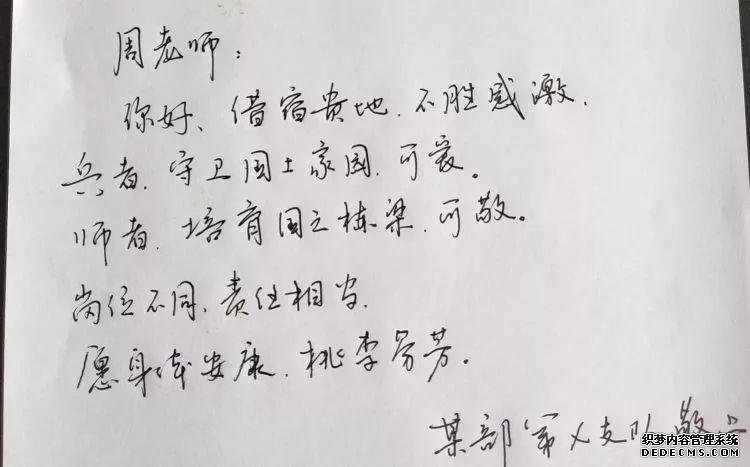 周老师：
你好、借宿贵地、不胜感激、
兵者、守卫国土家园、可爱。
师者、培育国之栋梁、可敬。
岗位不同、责任相当、
愿身体安康、桃李芬芳。
某部第X支队敬上
织梦内容管理系统
DEDECMS.COM